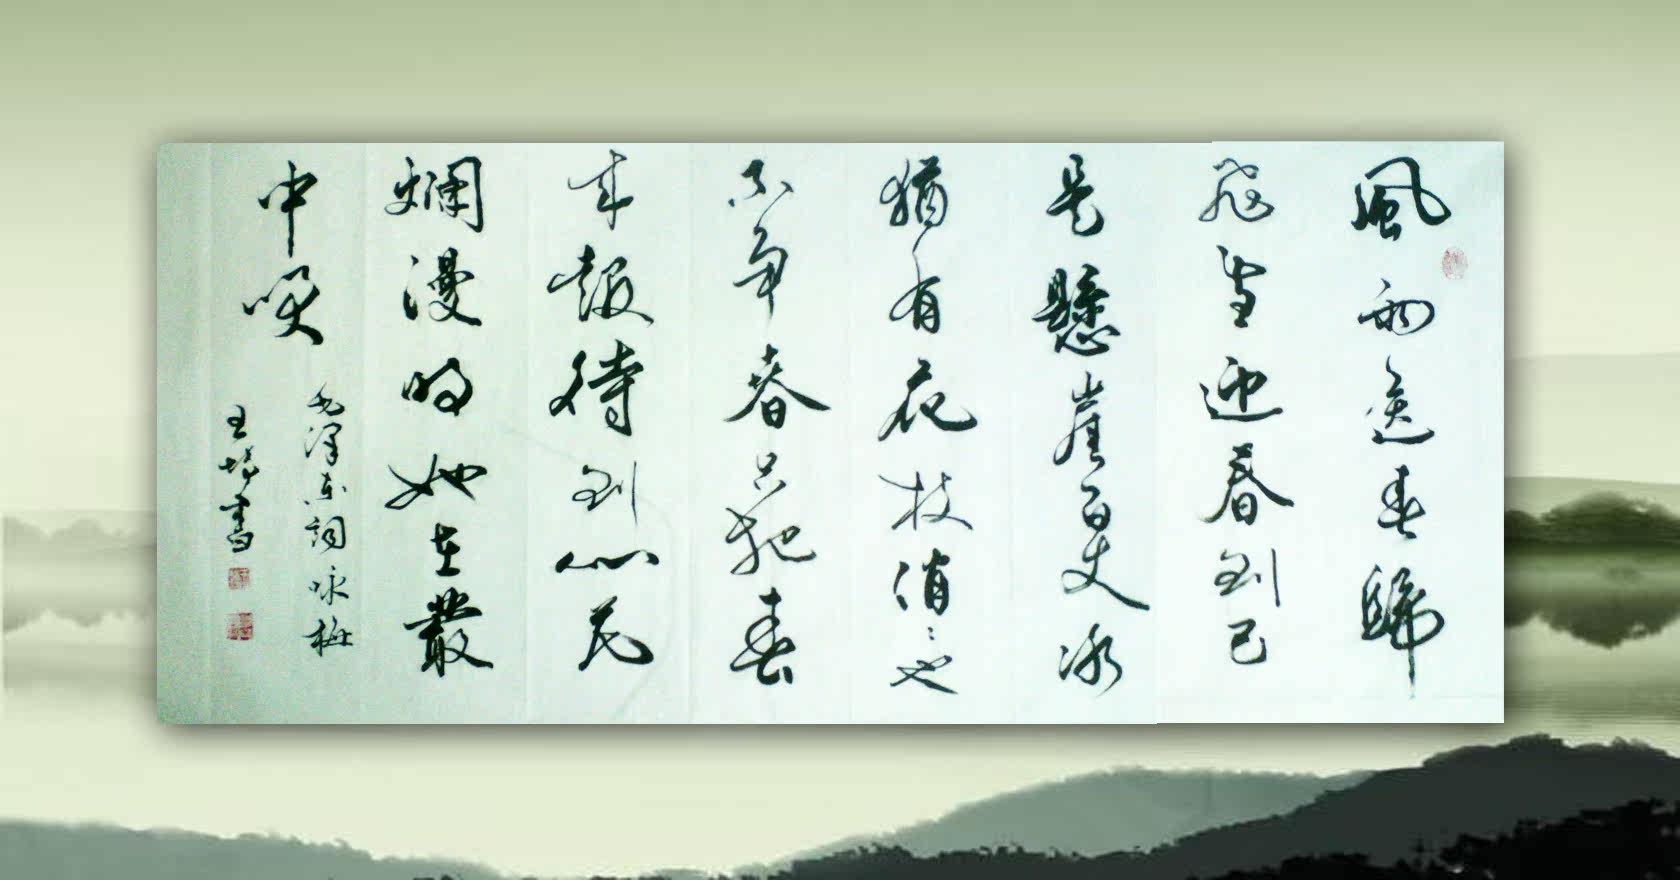 風雨送春歸
飛雪迎春到已
是懸崖百丈冰
猶有花枝俏〻也
不争春只把春
来報待到山花
爛漫時她在叢
中咲
毛澤东詞咏梅
王書